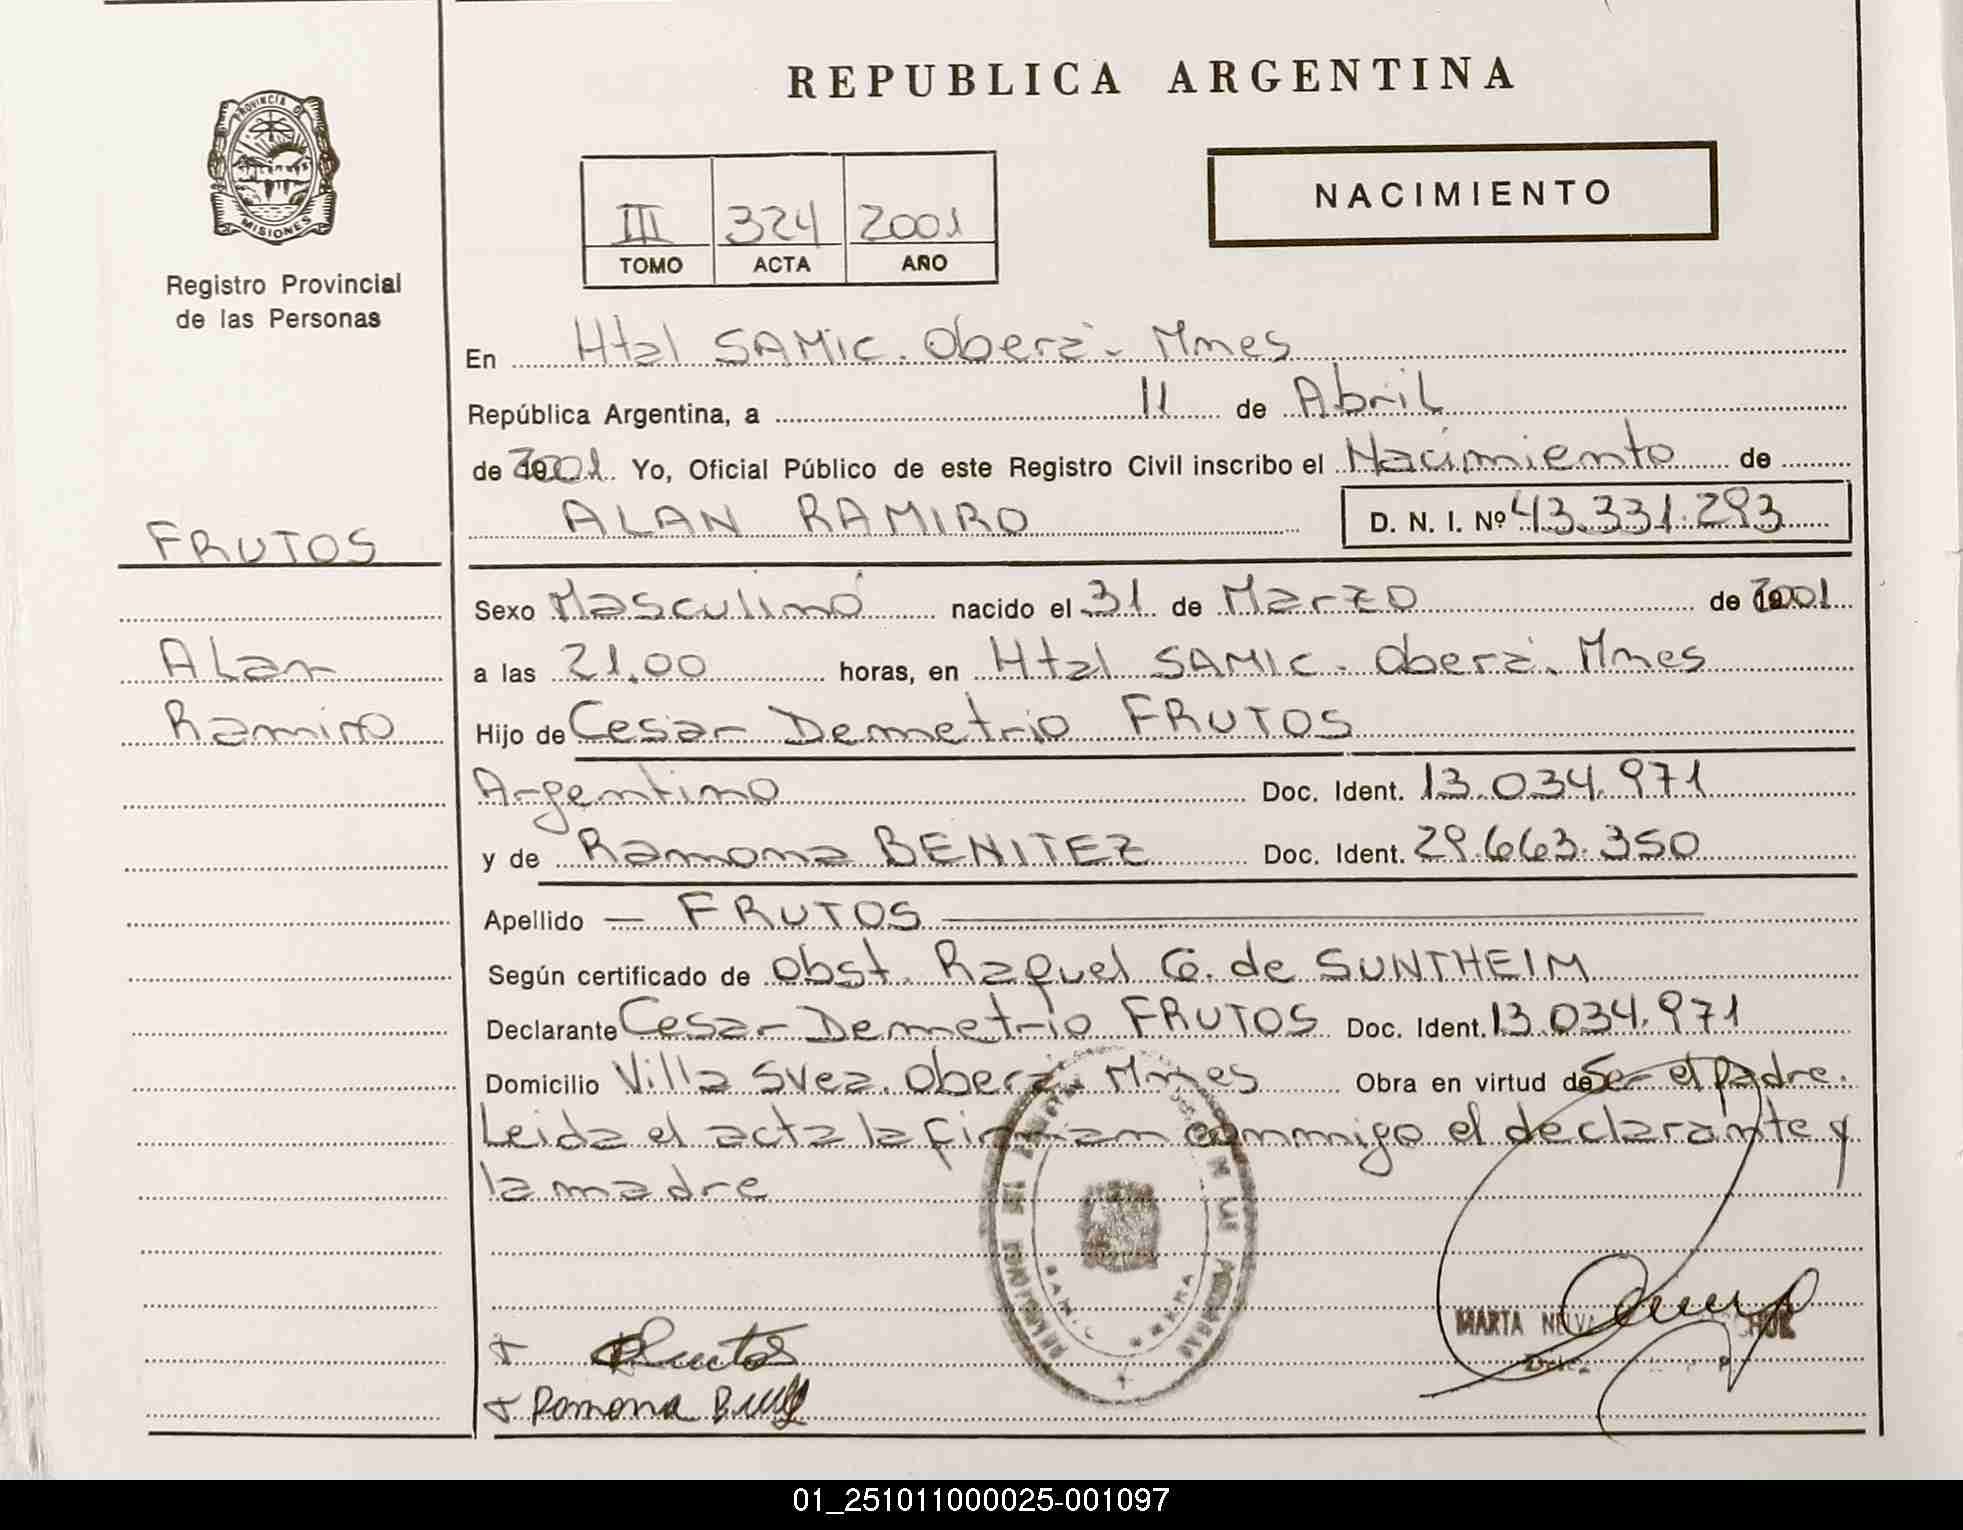 REPUBLICA ARGENTINA
PROVINCIA DE
MISIONES
Registro Provincial
de las Personas
NACIMIENTO
III 324 2001
TOMO ACTA AÑO
En Htal SAMIC. Oberá. Mnes
República Argentina, a 11 de Abril
de 2001 Yo, Oficial Público de este Registro Civil inscribo el Nacimiento de
ALAN RAMIRO D. N. I. Nº 43.331.293
FRUTOS
Alan
Ramiro
Sexo Masculino nacido el 31 de Marzo de 2001
a las 21.00 horas, en Htal SAMIC. Oberá. Mnes
Hijo de Cesar Demetrio FRUTOS
Argentino Doc. Ident. 13.034.971
y de Ramona BENITEZ Doc. Ident. 29.663.350
Apellido — FRUTOS
Según certificado de Obst. Raquel G. de SUNTHEIM
Declarante Cesar Demetrio FRUTOS Doc. Ident. 13.034.971
Domicilio Villa Svea. Oberá. Mnes Obra en virtud de Ser el padre.
Leida el acta la firman conmigo el declarante y
la madre
MARTA NELVA
Frutos
Ramona
01_251011000025-001097